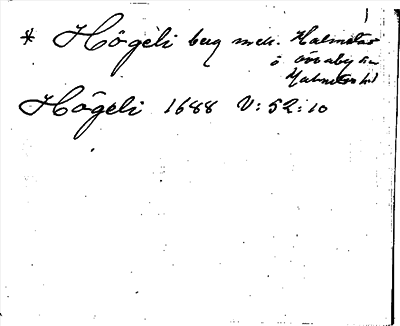 * Högeli berg mell. Halmstad
o. Övraby sn
Halmstads hd
Högeli 1688 V:52:10